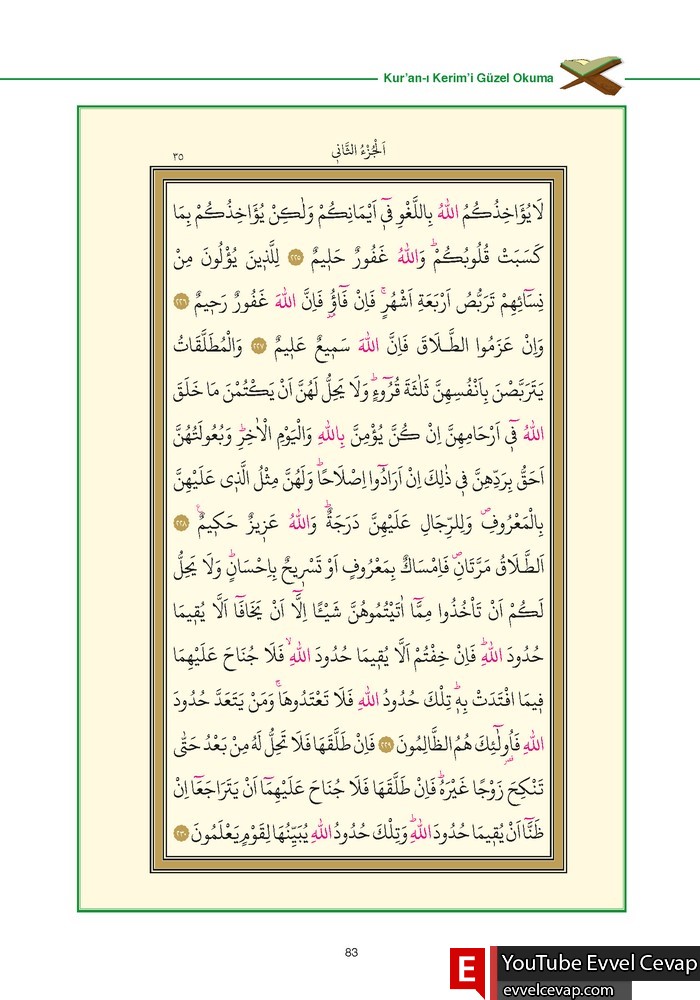 Kur'an-ı Kerim'i Güzel Okuma
اَلْجُزْءُ الثَّانٖي
٣٥
لَا يُؤَاخِذُكُمُ اللّٰهُ بِاللَّغْوِ فٖٓي اَيْمَانِكُمْ وَلٰكِنْ يُؤَاخِذُكُمْ بِمَا
كَسَبَتْ قُلُوبُكُمْؕ وَاللّٰهُ غَفُورٌ حَلٖيمٌ ﴿٢٢٥﴾ لِلَّذٖينَ يُؤْلُونَ مِنْ
نِسَٓائِهِمْ تَرَبُّصُ اَرْبَعَةِ اَشْهُرٍۚ فَاِنْ فَٓاؤُ۫ فَاِنَّ اللّٰهَ غَفُورٌ رَحٖيمٌ ﴿٢٢٦﴾
وَاِنْ عَزَمُوا الطَّلَاقَ فَاِنَّ اللّٰهَ سَمٖيعٌ عَلٖيمٌ ﴿٢٢٧﴾ وَالْمُطَلَّقَاتُ
يَتَرَبَّصْنَ بِاَنْفُسِهِنَّ ثَلٰثَةَ قُرُٓوءٍؕ وَلَا يَحِلُّ لَهُنَّ اَنْ يَكْتُمْنَ مَا خَلَقَ
اللّٰهُ فٖٓي اَرْحَامِهِنَّ اِنْ كُنَّ يُؤْمِنَّ بِاللّٰهِ وَالْيَوْمِ الْاٰخِرِؕ وَبُعُولَتُهُنَّ
اَحَقُّ بِرَدِّهِنَّ فٖي ذٰلِكَ اِنْ اَرَادُٓوا اِصْلَاحًاؕ وَلَهُنَّ مِثْلُ الَّذٖي عَلَيْهِنَّ
بِالْمَعْرُوفِࣕ وَلِلرِّجَالِ عَلَيْهِنَّ دَرَجَةٌؕ وَاللّٰهُ عَزٖيزٌ حَكٖيمٌࣖ ﴿٢٢٨﴾
اَلطَّلَاقُ مَرَّتَانِࣕ فَاِمْسَاكٌ بِمَعْرُوفٍ اَوْ تَسْرٖيحٌ بِاِحْسَانٍؕ وَلَا يَحِلُّ
لَكُمْ اَنْ تَاْخُذُوا مِمَّٓا اٰتَيْتُمُوهُنَّ شَيْـًٔا اِلَّٓا اَنْ يَخَافَٓا اَلَّا يُقٖيمَا
حُدُودَ اللّٰهِؕ فَاِنْ خِفْتُمْ اَلَّا يُقٖيمَا حُدُودَ اللّٰهِۙ فَلَا جُنَاحَ عَلَيْهِمَا
فٖيمَا افْتَدَتْ بِهٖؕ تِلْكَ حُدُودُ اللّٰهِ فَلَا تَعْتَدُوهَاۚ وَمَنْ يَتَعَدَّ حُدُودَ
اللّٰهِ فَاُو۬لٰٓئِكَ هُمُ الظَّالِمُونَ ﴿٢٢٩﴾ فَاِنْ طَلَّقَهَا فَلَا تَحِلُّ لَهُ مِنْ بَعْدُ حَتّٰى
تَنْكِحَ زَوْجًا غَيْرَهُؕ فَاِنْ طَلَّقَهَا فَلَا جُنَاحَ عَلَيْهِمَٓا اَنْ يَتَرَاجَعَٓا اِنْ
ظَنَّٓا اَنْ يُقٖيمَا حُدُودَ اللّٰهِؕ وَتِلْكَ حُدُودُ اللّٰهِ يُبَيِّنُهَا لِقَوْمٍ يَعْلَمُونَ ﴿٢٣٠﴾
83
E YouTube Evvel Cevap
evvelcevap.com